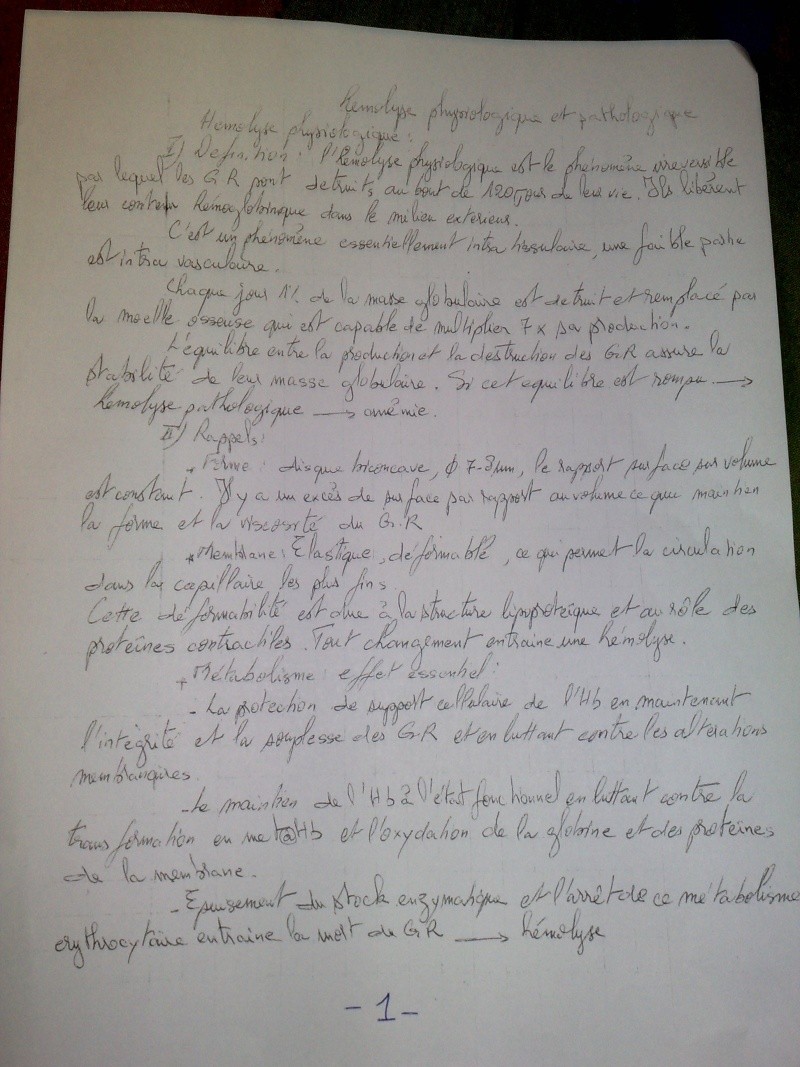 Hemolyse physiologique et pathologique
Hemolyse physiologique :
I) Definition : l'hémolyse physiologique est le phénomène irreversible
par lequel les GR sont detruits au bout de 120 jour de leur vie. Ils libérent
leur contenu hémoglobinique dans le milieu exterieur.
C'est un phénomène essentiellement intra tissulaire, une faible partie
est intra vasculaire.
Chaque jour 1% de la masse globulaire est detruit et remplacé par
la moelle osseuse qui est capable de multiplier 7x sa production.
L'équilibre entre la production et la destruction des GR assure la
stabilité de leur masse globulaire. Si cet equilibre est rompu →
hemolyse pathologique → anémie.
II) Rappels :
+ Forme : disque biconcave, φ 7-8µm, le rapport surface sur volume
est constant. Il y a un excés de surface par rapport au volume ce qui maintien
la forme et la viscosité du G.R
* Membrane : Elastique, déformable, ce qui permet la circulation
dans la capillaire les plus fins
Cette déformabilité est due à la structure lipoproteïque et au rôle des
proteïnes contractiles. Tout changement entraine une hémolyse.
+ Métabolisme : effet essentiel :
- La protection de support cellulaire de l'Hb en maintenant
l'intégrité et la souplesse des G.R et en luttant contre les alterations
membranaires.
- Le maintien de l'Hb à l'état fonctionnel en luttant contre la
transformation en metHb et l'oxydation de la globine et des proteïnes
de la membrane.
- Epuisement du stock enzymatique et l'arrêt de ce métabolisme
erythrocytaire entraine la mort du GR → hémolyse
- 1 -